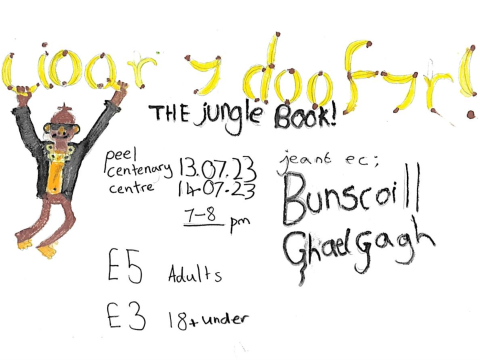 Lioar y doofyr!
THE jungle BOOK!
peel centenary centre
13.07.23
14.07.23
7-8 pm
£5 Adults
£3 18+under
jeant ec;
Bunscoill
Ghaelgagh